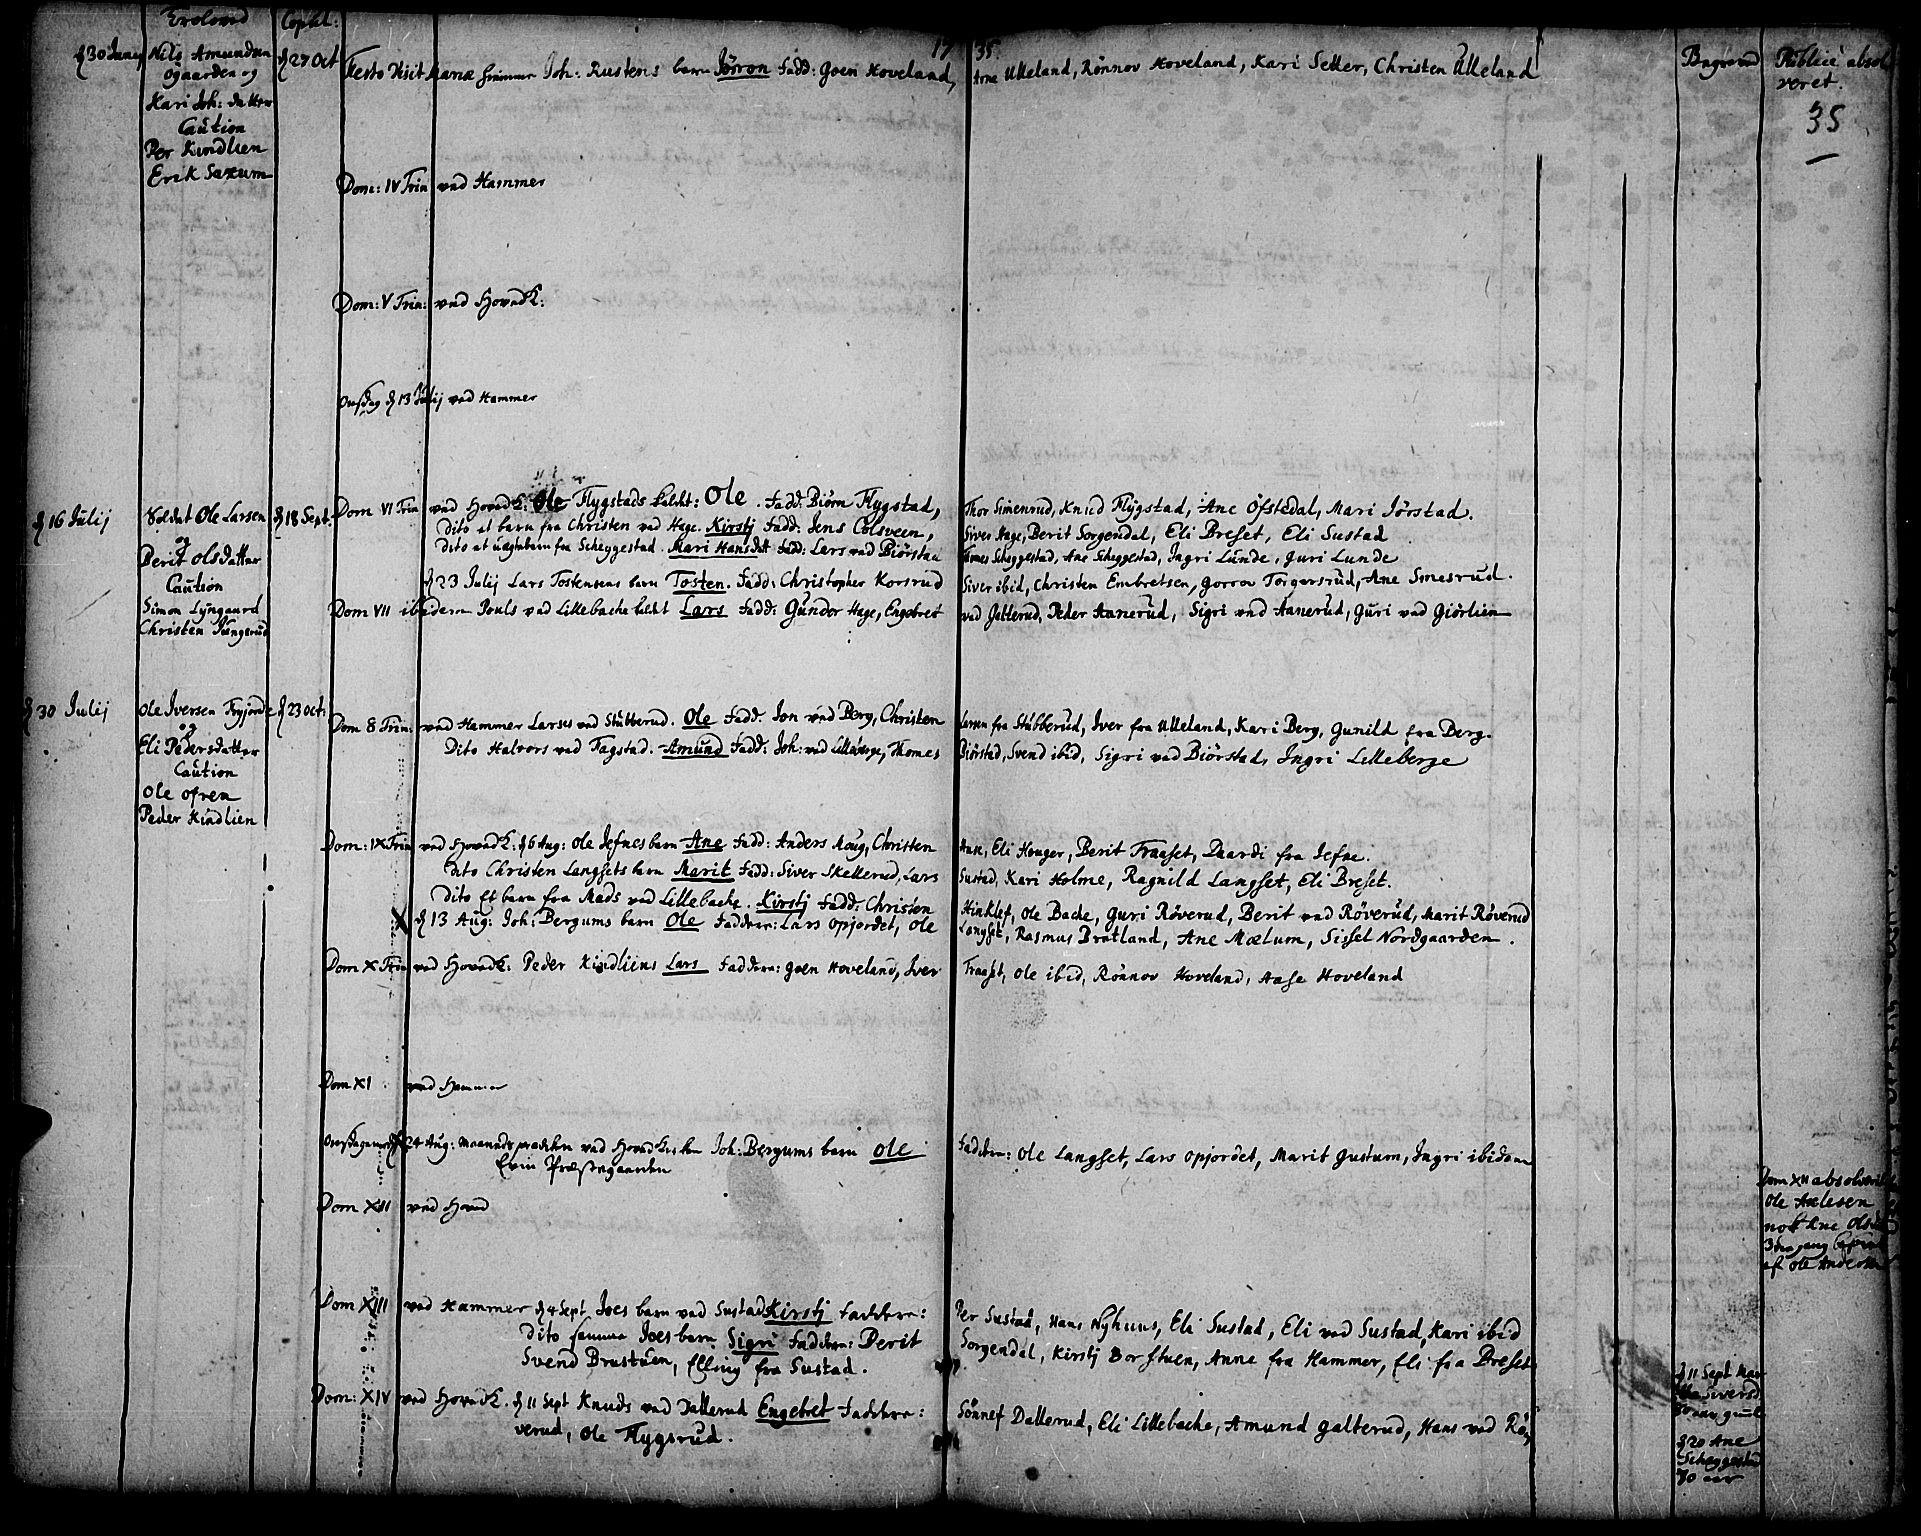 Trolovede
Copul:
17 35.
Begraved
Publice absol
veret.
35
30 Junij
Nils Amundsen
Ogaarden og
Kari Joh: datter
Caution
Per Kindlien
Erik Saxum
d 27 Oct
Festo Visit Mariæ Joh: Rustens barn Jörron Fadd: Goen Hoveland,
Arne Ulleland, Rönnov Hoveland, Kari Setter, Christen Ulleland
Dom: IV Trin ved Hammer
Dom: V Trin: ved HovedK:
Onsdag d 13 Julij ved Hammer
d 16 Julij
Soldat Ole Larsen
og
Berit Olsdatter
Caution
Simon Lyngaard
Christen Jungerud
d 18 Sept.
Dom VI Trin ved HovedK: Ole Flygstads kaldt: Ole. Fadd: Biörn Flygstad,
Thor Simenrud, Knud Flygstad, Ane Öfstedal, Mari Jörstad.
Dito et barn fra Christen ved Hage. Kirstj Fadd: Jens Colsveen,
Siver Hage, Berit Sorgendal, Eli Breset, Eli Sustad
Dito et uægtebarn fra Scheggestad. Mari Hansdatt Fadd: Lars ved Biörstad
Tomes Scheggestad, Ane Scheggestad, Ingri Lunde, Guri Lunde
d 23 Julij Lars Tostensens barn Tosten. Fadd: Christopher Korsrud
Siver ibid, Christen Embretsen, Gorroe Torgersrud, Ane Smesrud.
Dom VII ibidem Pouls ved Lillebache kaldt Lars Fadd: Gundor Hage, Engebret
ved Galterud, Peder Aanerud, Sigri ved Aanerud, Guri ved Giörlien
d 30 Julij
Ole Iversen Tryjorde
og
Eli Pedersdatter
Caution
Ole Ofren
Peder Kindlien
d 23 Oct:
Dom 8 Trin: ved Hammer Larses ved Stubberud. Ole Fadd. Jon ved Berg, Christen
Larsen fra Stubberud, Iver fra Ulleland, Kari Berg, Gunild fra Berg.
Dito Halvors ved Fagstad. Amund Fadd: Joh: ved Lilleberge, Thomes
Biörstad, Svend ibid, Sigri ved Biörstad, Ingri Lilleberge
Dom: IX Trin ved HovedK: d 6 Aug: Ole Jefnes barn Ane Fadd: Anders Moug, Christen
Eli Houger, Berit Fraaset, Daardi fra Jefne.
Dito Christen Langsets barn Marit Fadd: Siver Skellerud, Lars
Sustad, Kari Holme, Ragnild Langset, Eli Breset.
Dito Et barn fra Mads ved Lillebache. Kirstj Fadd: Christen
Hinklef, Ole Bache, Guri Röverud, Berit ved Röverud, Marit Röverud
X d 13 Aug: Joh: Bergums barn Ole Faddere: Lars Opjordet, Ole
Langset, Rasmus Bratland, Ane Mælum, Sissel Nordgaarden.
Dom X Trin ved HovedK: Peder Kindliens Lars Faddere: Goen Hoveland, Iver
Fraaset, Ole ibid, Rönnov Hoveland, Aase Hoveland
Dom XI ved Hammer
24 Aug: Maaneds prædiken ved HovedKirken Joh: Bergums barn Ole
Faddere: Ole Langset, Lars Opjordet, Marit Gustum, Ingri ibidem
Præstegaarden
Dom XII ved Hoved
Dom XII absolverit
Ole Axlesen
nok Ane Olsd
3die gang
af Ole Andersen
Dom XIII ved Hammer d 4 Sept Joes barn ved Sustad Kirstj Faddere:
Per Sustad, Hans Nyhuus, Eli Sustad, Eli ved Sustad, Kari ibid
Dito samme Joes barn Sigri Faddere: Berit
Sorgendal, Kirstj Borstuen, Anne fra Hammer, Eli fra Breset
Svend Brustuen, Elling fra Sustad.
Dom: XIV ved HovedK. d 11 Sept Knuds ved Dallerud Engebret Faddere:
Sönnef Dallerud, Eli Lillebache, Amund Galterud, Hans ved Rö
verud, Ole Flygsrud.
d 11 Sept Mar
Siversd
aar gml
d 20 Ane
Scheggestad
70 aar